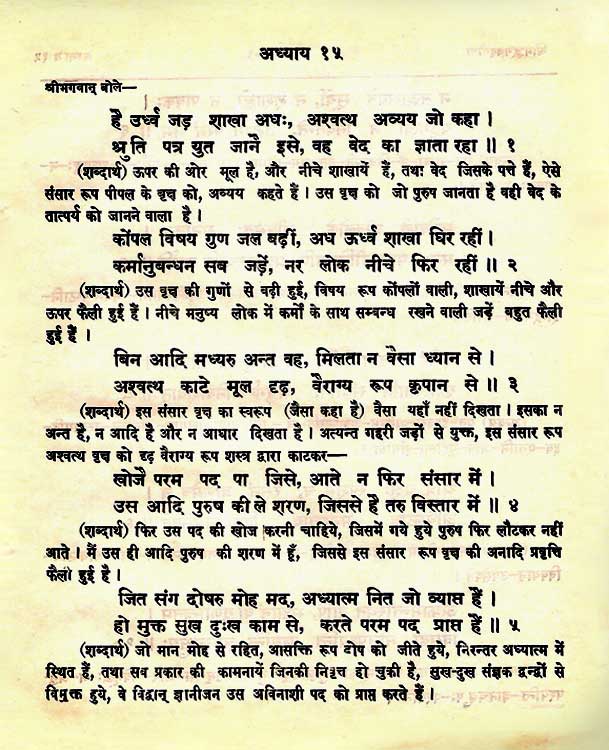 अध्याय १५
श्रीभगवान् बोले—
है उर्ध्व जड़ शाखा अधः, अश्वत्थ अव्यय जो कहा ।
श्रुति पत्र युत जानै इसे, वह वेद का ज्ञाता रहा ॥ १
(शब्दार्थ) ऊपर की ओर मूल है, और नीचे शाखायें हैं, तथा वेद जिसके पत्ते हैं, ऐसे
संसार रूप पीपल के वृक्ष को, अव्यय कहते हैं । उस वृक्ष को जो पुरुष जानता है वही वेद के
तात्पर्य को जानने वाला है ।
कोंपल विषय गुण जल बढ़ीं, अध ऊर्ध्व शाखा घिर रहीं ।
कर्मानुबन्धन सब जड़ें, नर लोक नीचे फिर रहीं ॥ २
(शब्दार्थ) उस वृक्ष की गुणों से बढ़ी हुई, विषय रूप कोंपलों वाली, शाखायें नीचे और
ऊपर फैली हुई हैं । नीचे मनुष्य लोक में कर्मों के साथ सम्बन्ध रखने वाली जड़ें बहुत फैली
हुई हैं ।
बिन आदि मध्यरु अन्त वह, मिलता न वैसा ध्यान से ।
अश्वत्थ काटे मूल दृढ़, वैराग्य रूप कृपान से ॥ ३
(शब्दार्थ) इस संसार वृक्ष का स्वरूप (जैसा कहा है) वैसा यहाँ नहीं दिखता । इसका न
अन्त है, न आदि है और न आधार दिखता है । अत्यन्त गहरी जड़ों से युक्त, इस संसार रूप
अश्वत्थ वृक्ष को दृढ़ वैराग्य रूप शस्त्र द्वारा काटकर—
खोजै परम पद पा जिसे, आते न फिर संसार में ।
उस आदि पुरुष की ले शरण, जिससे है तरु विस्तार में ॥ ४
(शब्दार्थ) फिर उस पद की खोज करनी चाहिये, जिसमें गये हुये पुरुष फिर लौटकर नहीं
आते । मैं उस ही आदि पुरुष की शरण में हूँ, जिससे इस संसार रूप वृक्ष की अनादि प्रवृत्ति
फैली हुई है ।
जित संग दोषरु मोह मद, अध्यात्म नित जो व्याप्त हैं ।
हो मुक्त सुख दुःख काम से, करते परम पद प्राप्त हैं ॥ ५
(शब्दार्थ) जो मान मोह से रहित, आसक्ति रूप दोष को जीते हुये, निरन्तर अध्यात्म में
स्थित हैं, तथा सब प्रकार की कामनायें जिनकी निवृत्त हो चुकी है, सुख-दुख संज्ञक द्वन्द्वों से
विमुक्त हुये, वे विद्वान् ज्ञानीजन उस अविनाशी पद को प्राप्त करते हैं ।